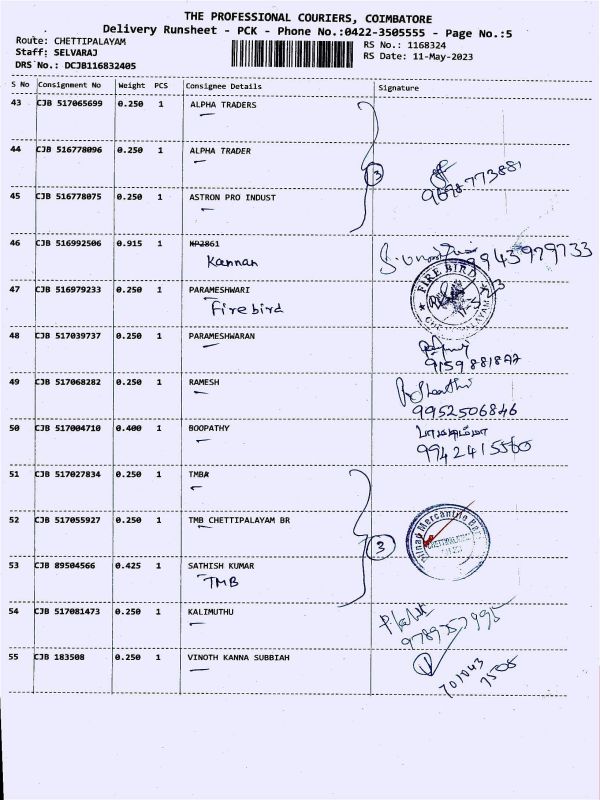 THE PROFESSIONAL COURIERS, COIMBATORE
Delivery Runsheet - PCK - Phone No.:0422-3505555 - Page No.:5
Route: CHETTIPALAYAM
RS No.: 1168324
Staff: SELVARAJ
RS Date: 11-May-2023
DRS No.: DCJB116832405
S No Consignment No Weight PCS Consignee Details Signature
43 CJB 517065699 0.250 1 ALPHA TRADERS
44 CJB 516778096 0.250 1 ALPHA TRADER
3
45 CJB 516778075 0.250 1 ASTRON PRO INDUST
46 CJB 516992506 0.915 1 NP2861
Kannan 9943979733
47 CJB 516979233 0.250 1 PARAMESHWARI
Firebird
FIRE BIRD
48 CJB 517039737 0.250 1 PARAMESHWARAN
49 CJB 517068282 0.250 1 RAMESH
9952506846
50 CJB 517004710 0.400 1 BOOPATHY
9942415560
51 CJB 517027834 0.250 1 TMB
52 CJB 517055927 0.250 1 TMB CHETTIPALAYAM BR
3
Mercantile
53 CJB 89504566 0.425 1 SATHISH KUMAR
TMB
54 CJB 517081473 0.250 1 KALIMUTHU
9789757995
55 CJB 183508 0.250 1 VINOTH KANNA SUBBIAH